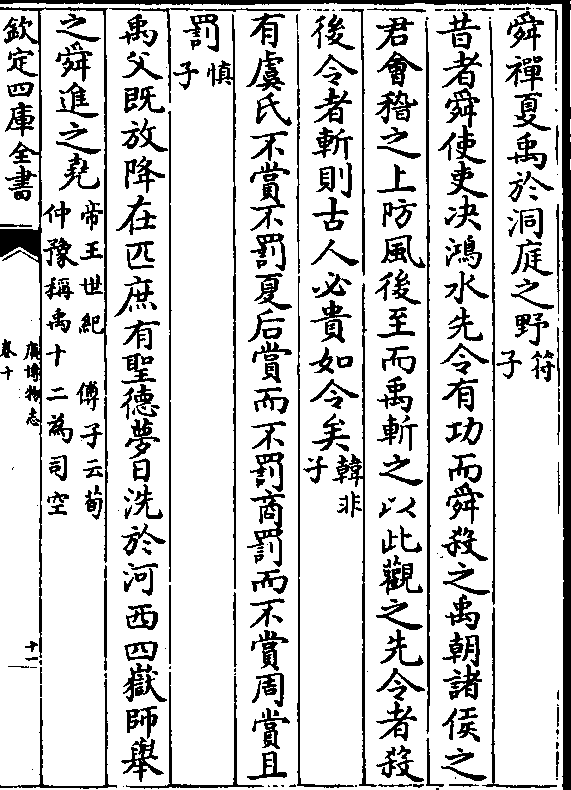 舜禪夏禹於洞庭之野符子
昔者舜使吏决鴻水先令有功而舜殺之禹朝諸侯之
君會稽之上防風後至而禹斬之以此觀之先令者殺
後令者斬則古人必貴如令矣韓非子
有虞氏不賞不罰夏后賞而不罰商罰而不賞周賞且
罰慎子
禹父既放降在匹庶有聖德夢日洗於河西四嶽師舉
之舜進之堯帝王世紀 傅子云荀仲豫稱禹十二為司空
欽定四庫全書
廣博物志
卷十
十一